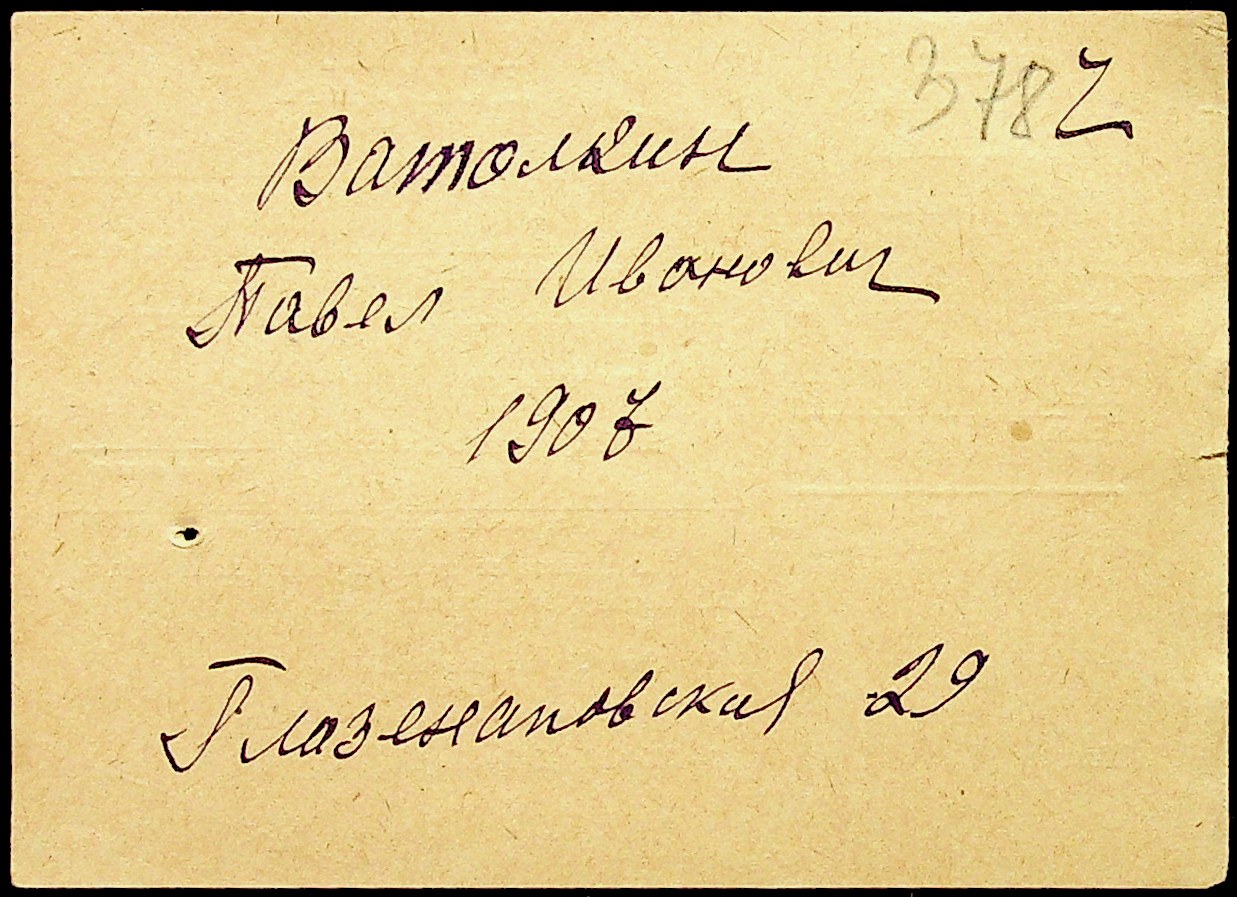 378 Ч
Ватолкин
Павел Иванович
1907
Глазенаповская 29